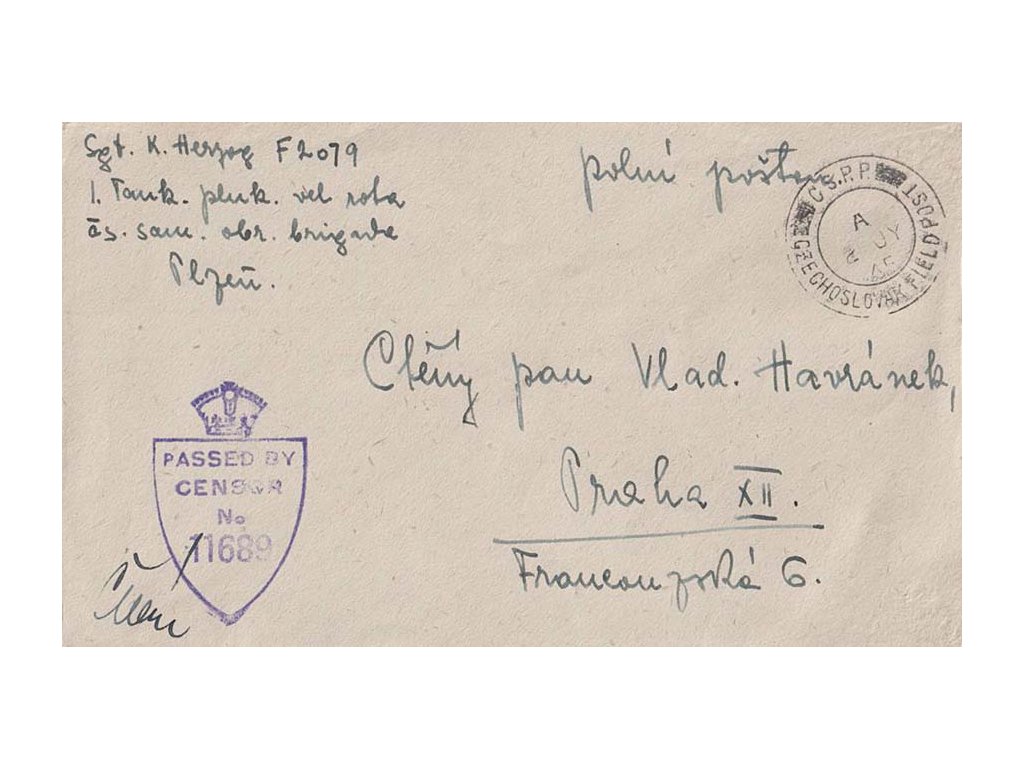 Sgt. K. Herzog F2079
1. Tank. pluk. vel rota
čs. sam. obr. brigada
Plzeň.
polní pošta
Č.S.P.P.
CZECHOSLOVAK FIELD POST
A
JY
45
Ctěný pan Vlad. Havránek,
Praha XII.
Francouzská 6.
PASSED BY
CENSOR
No
11689